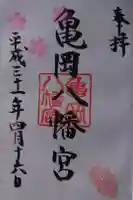 奉拝
亀岡八幡宮
平成三十一年四月十六日